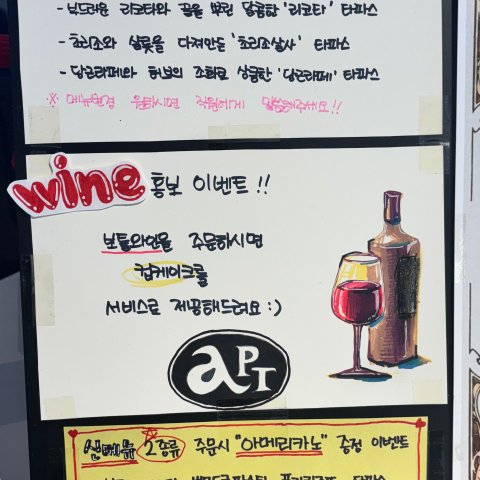 - 부드러운 리코타와 꿀을 뿌린 달콤한 '리코타' 타파스
- 초리조와 샬롯을 다져만든 '초리조살사' 타파스
- 당근라페와 허브의 조화로 상큼한 '당근라페' 타파스
※ 메뉴변경 원하시면 직원에게 말씀해주세요!!
wine 홍보 이벤트!!
보틀와인을 주문하시면
컵케이크를
서비스로 제공해드려요:)
aPT
신메뉴 2종류 주문시 "아메리카노" 증정 이벤트